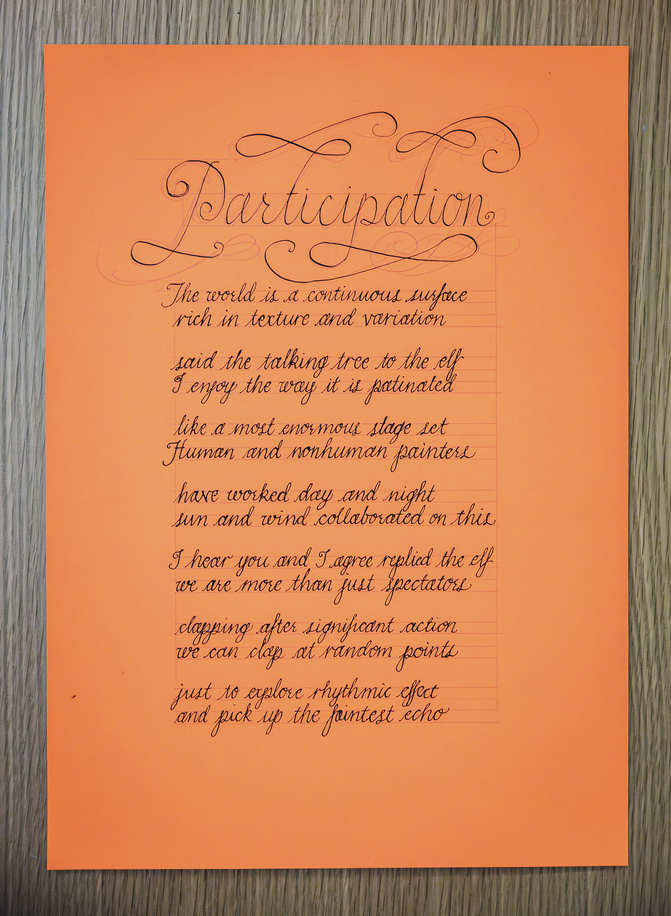 Participation
The world is a continuous surface
rich in texture and variation
said the talking tree to the elf
I enjoy the way it is patinated
like a most enormous stage set
Human and nonhuman painters
have worked day and night
sun and wind collaborated on this
I hear you and I agree replied the elf
we are more than just spectators
clapping after significant action
we can clap at random points
just to explore rhythmic effect
and pick up the faintest echo